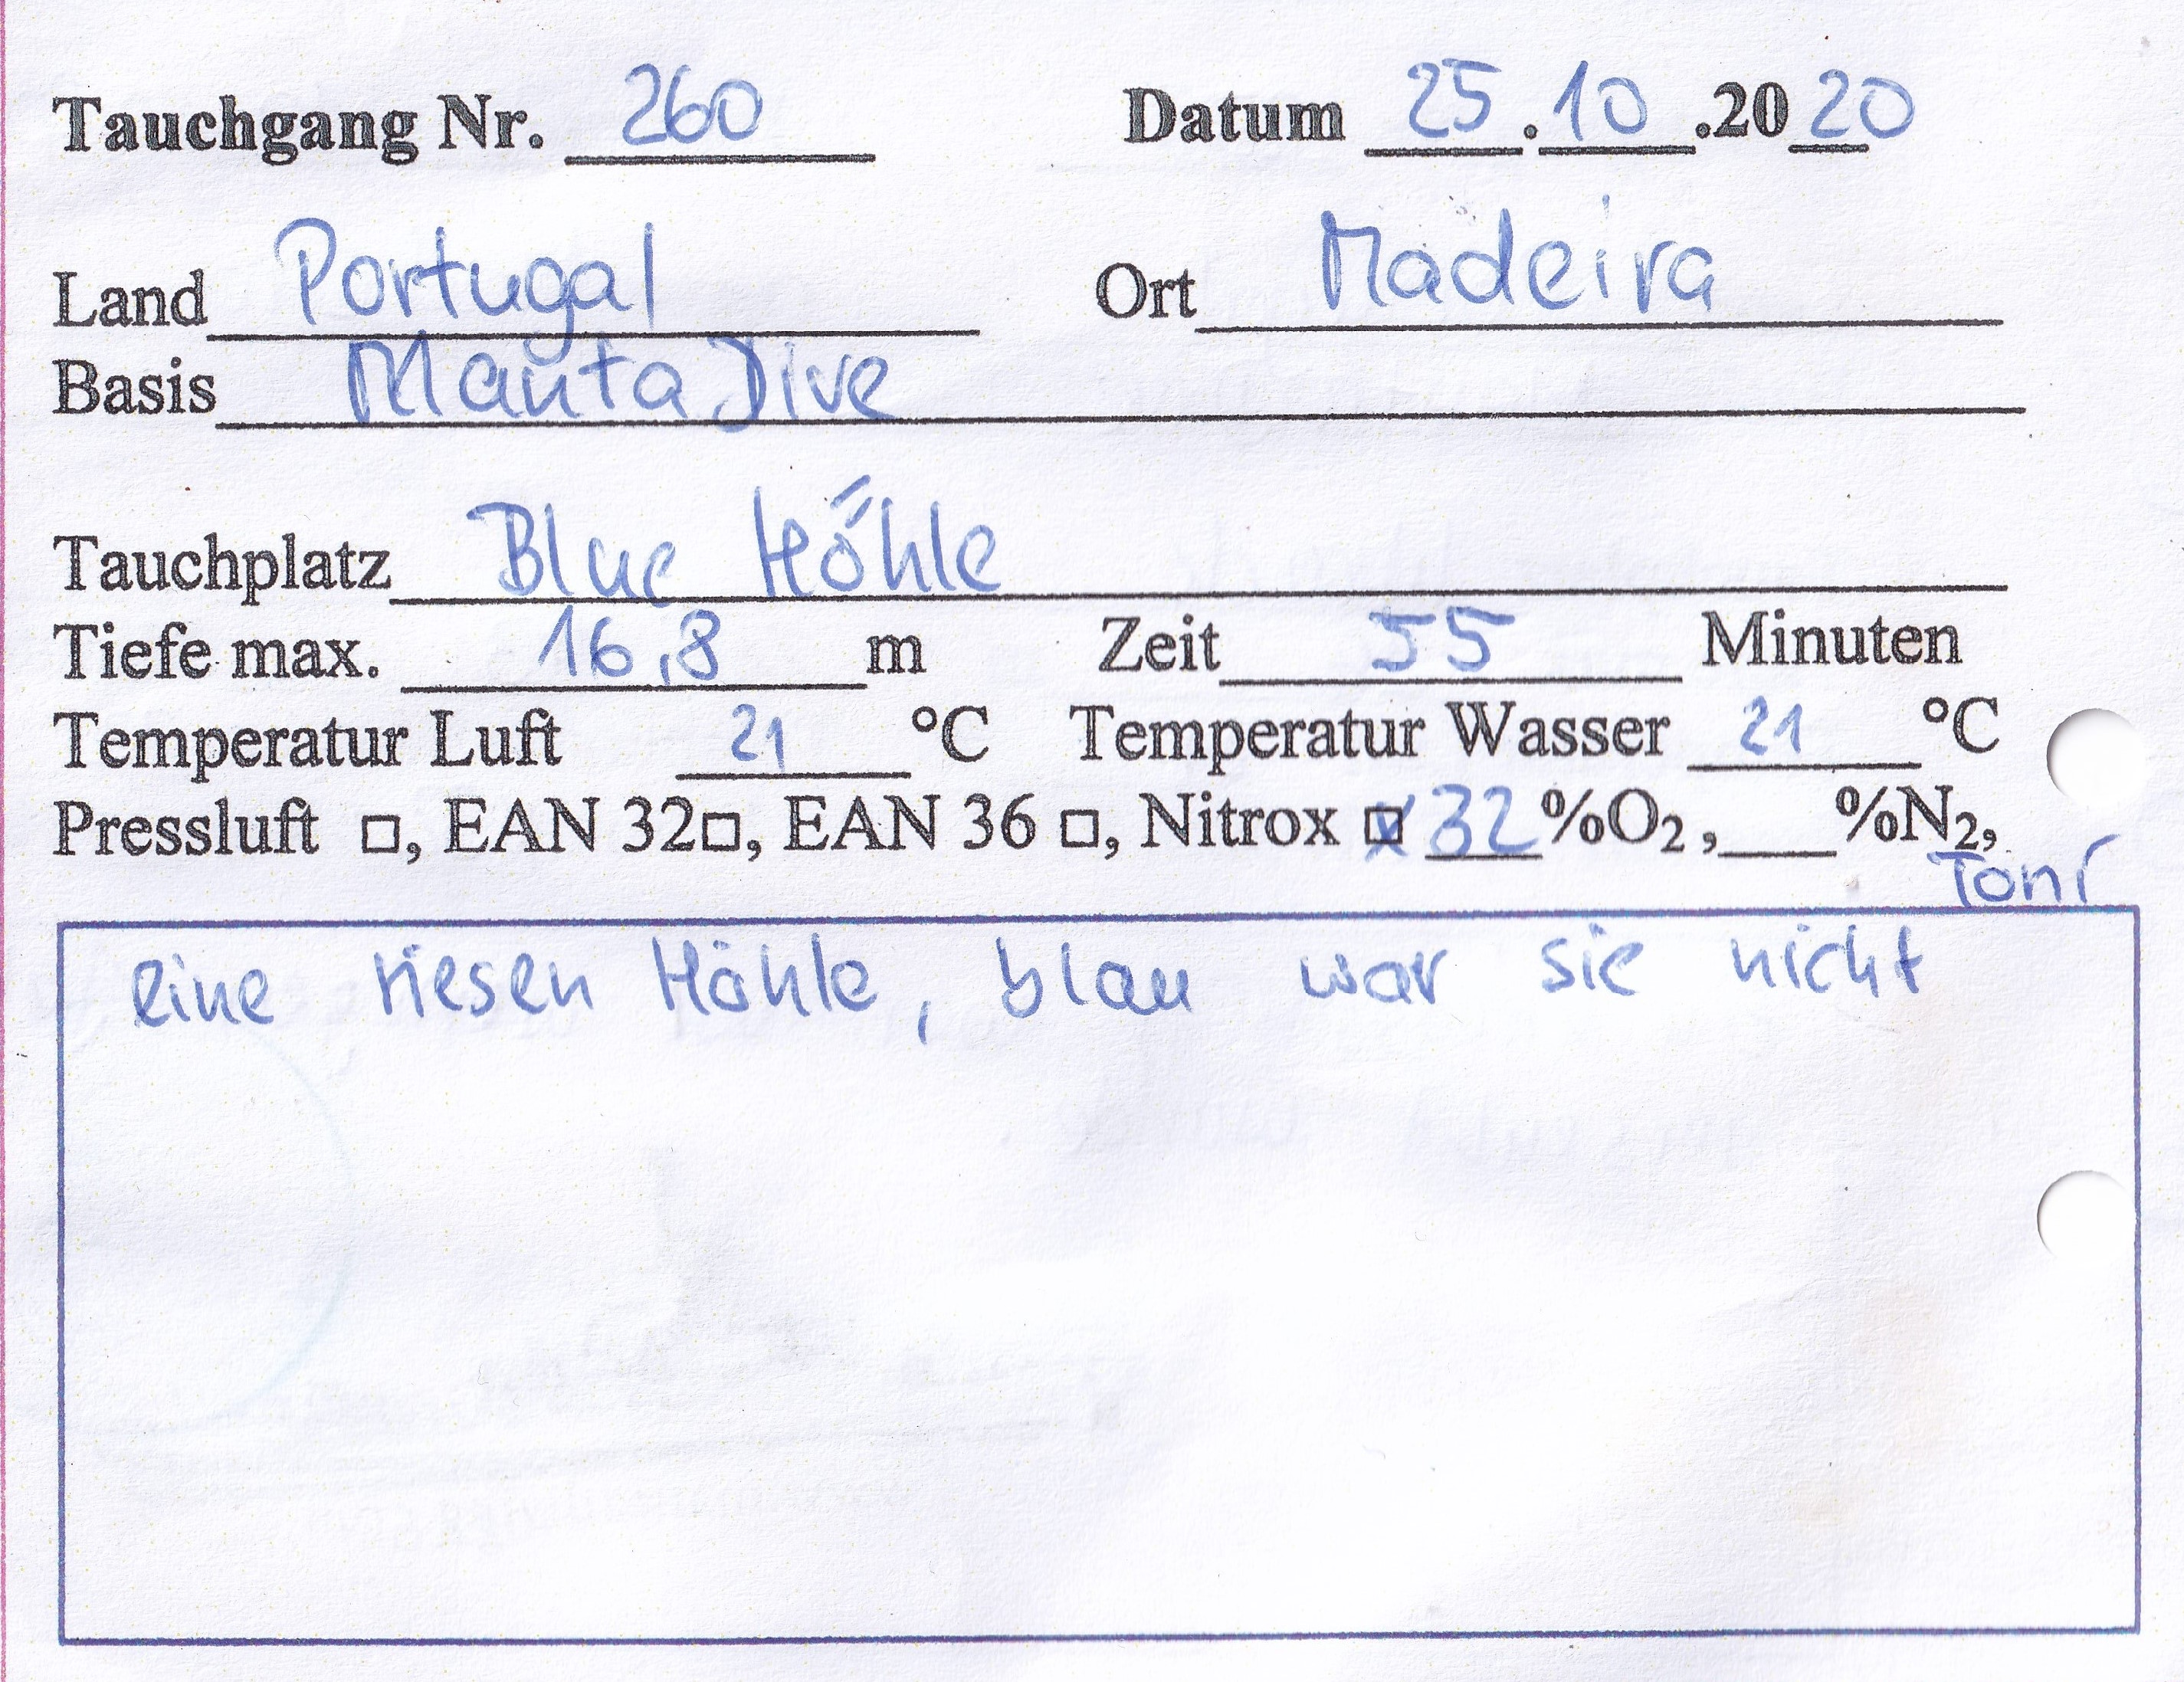 Tauchgang Nr. 260 Datum 25.10.2020
Land Portugal Ort Madeira
Basis Manta Dive
Tauchplatz Blue Höhle
Tiefe max. 16,8 m Zeit 55 Minuten
Temperatur Luft 21 °C Temperatur Wasser 21 °C
Pressluft □, EAN 32□, EAN 36 □, Nitrox ☒ 32 %O₂, ___%N₂,
Toni
eine riesen Höhle, blau war sie nicht